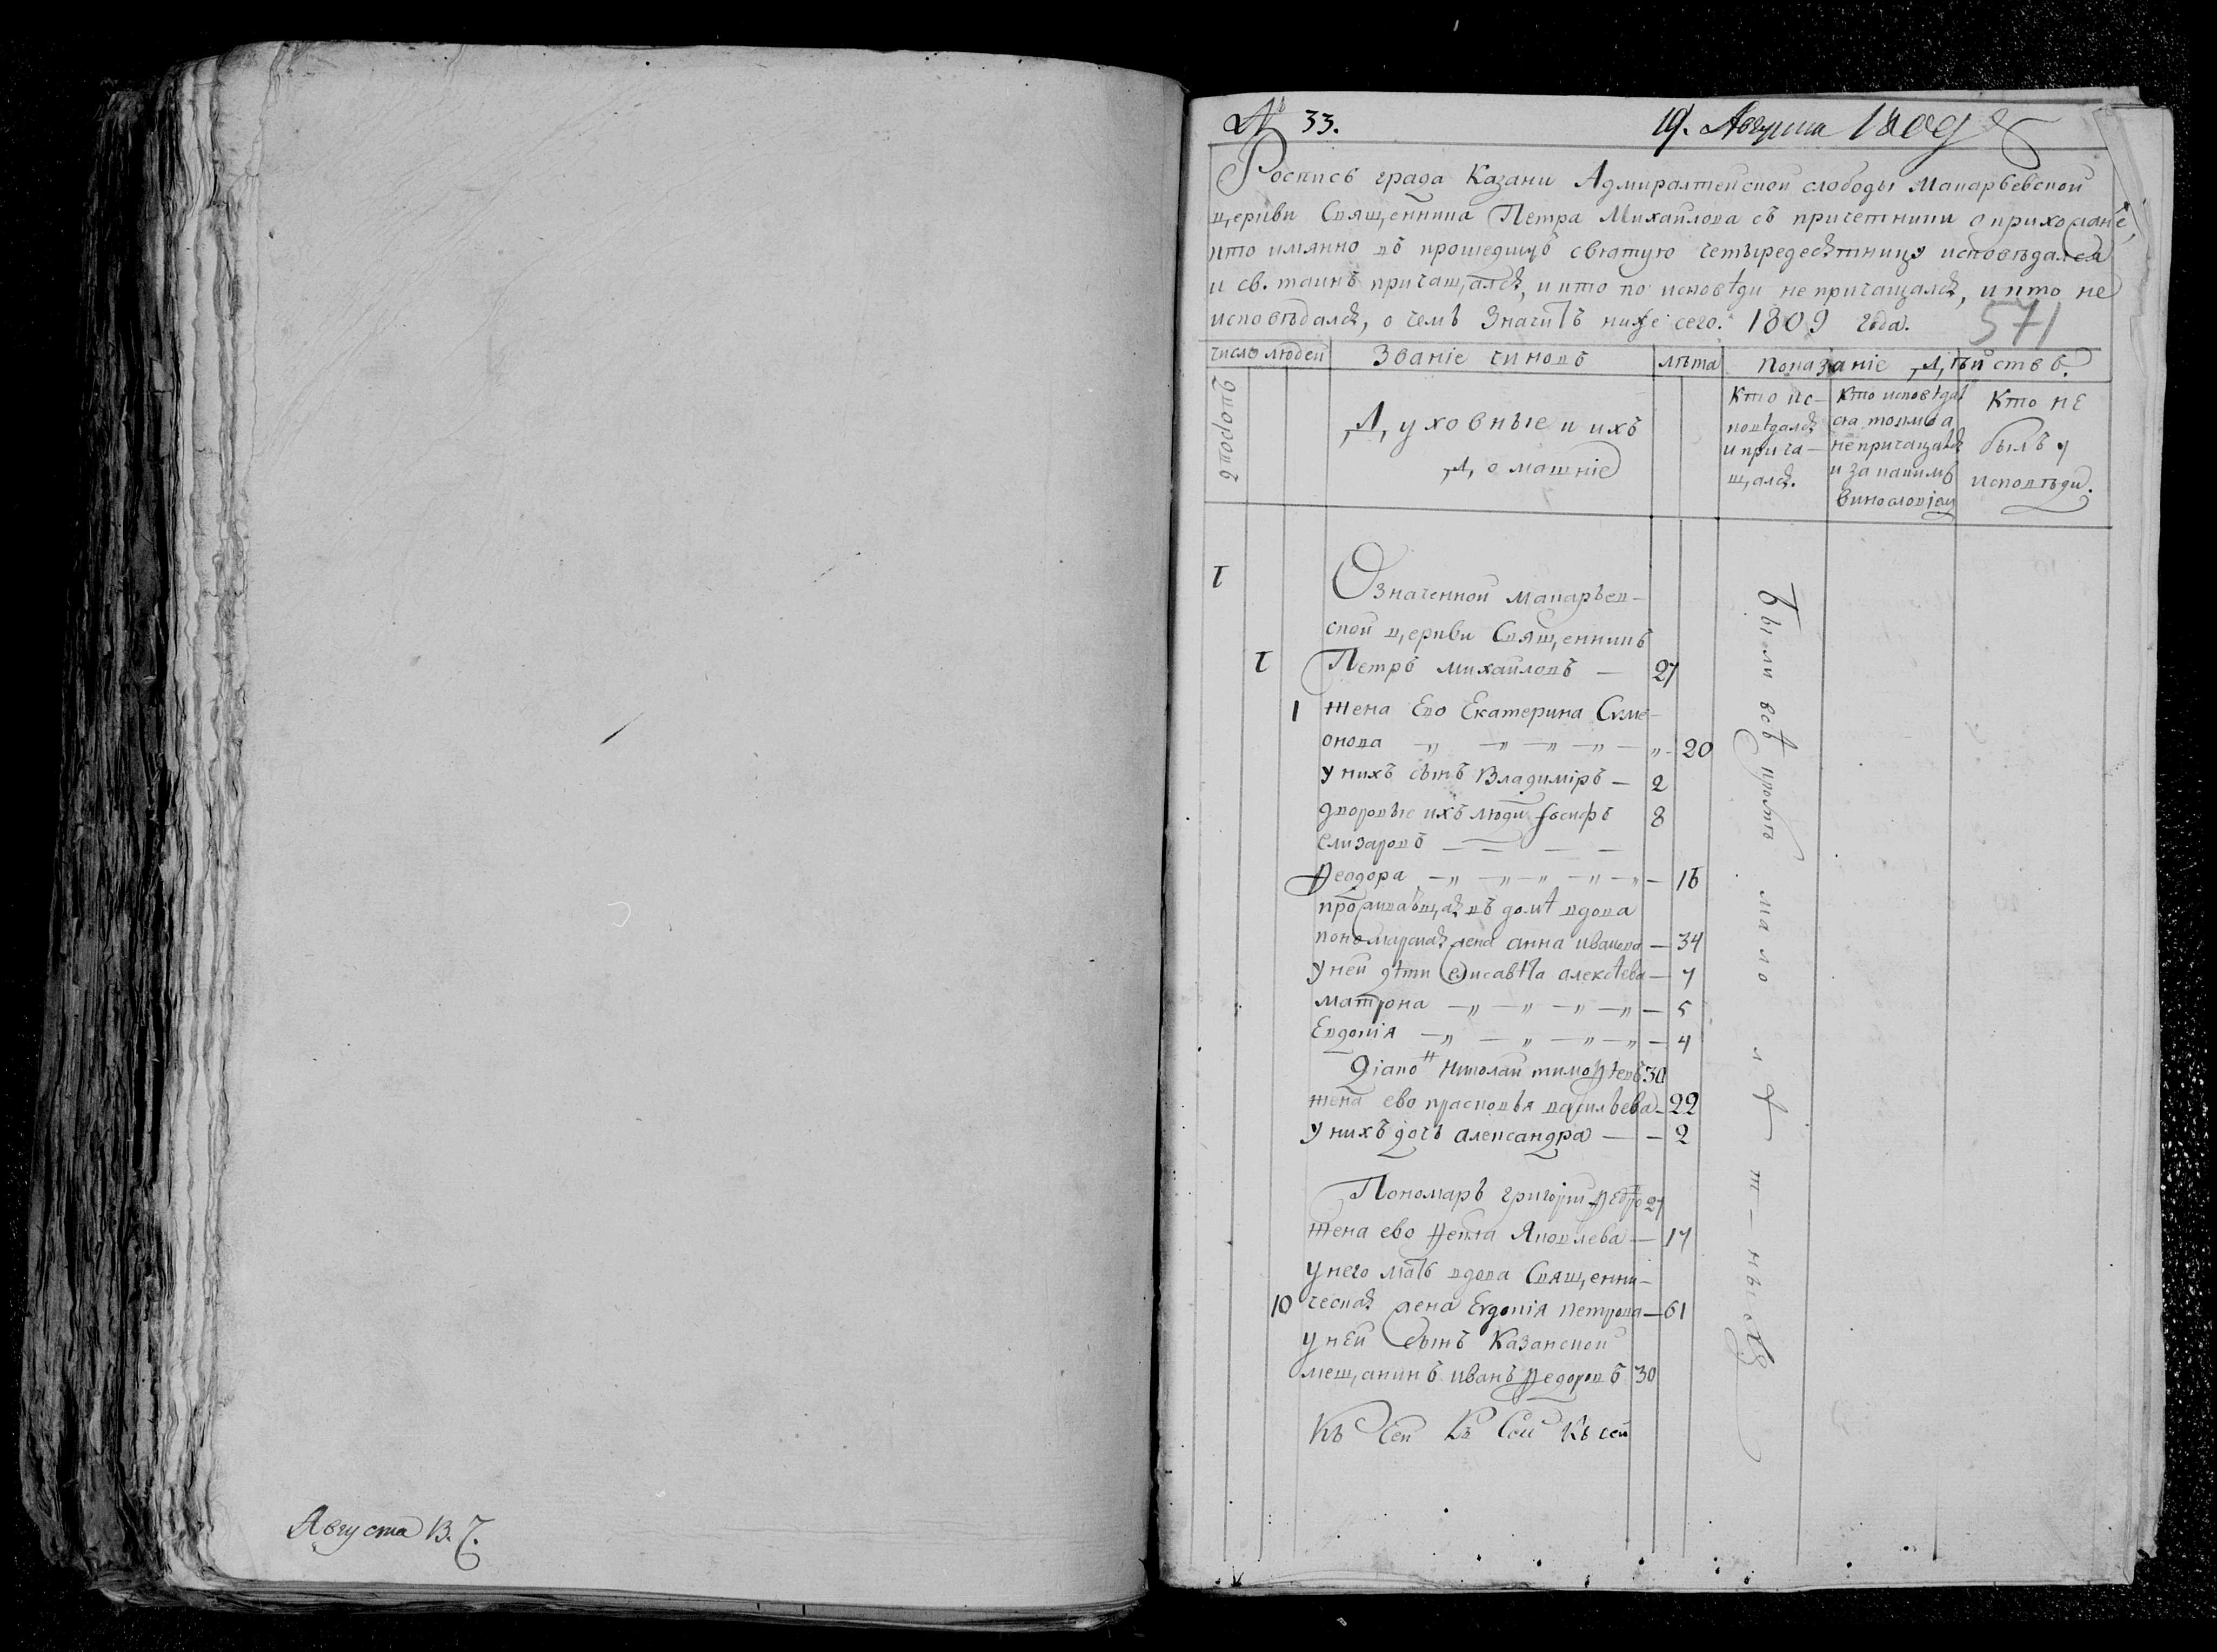 Августа 13. Ч.
№ 33.
19. Августа 1809
Роспись града Казани Адмиралтейской слободы Макарьевской
церкви Священника Петра Михайлова съ причетники о прихожанѣ,
кто имянно въ прошедшую святую четыредесятницу исповѣдался
и св. таинъ причащался, и кто по исповѣди не причащался, и кто не
исповѣдался, о чемъ значитъ ниже сего. 1809 года.
571
число людей
Званіе чиновъ
лѣта
показаніе дѣйствъ.
дворовъ
Духовные и ихъ
домашніе
Кто ис-
повѣдался
и прича-
щался.
Кто исповѣдал
ся токмо а
не причащался
и за какимъ
винословіем
Кто не
былъ у
исповѣди.
1
Означенной макарьев-
ской церкви Священникъ
1 Петръ михайловъ — 27
1 жена Ево Екатерина Симе-
онова — „ — „ — „ — „ 20
у нихъ сынъ Владиміръ — 2
дворовые ихъ люди Іосифъ 8
елизаровъ — — — —
Ѳеодора — „ — „ — „ — „ — „ — 16
проживающая въ домѣ вдова
пономарская жена анна иванова — 34
у ней дѣти елисавѣта алексѣева — 7
матрона — „ — „ — „ — „ — 5
Евдокія — „ — „ — „ — „ — 4
Діако" николай тимоѳѣевъ 30
жена ево прасковья васильева — 22
у нихъ дочь александра — — 2
Пономарь григорій Ѳедо 27
жена ево Ѳекла Яковлева — 17
у него мать вдова Священни-
10 ческая жена Евдокія петрова — 61
у ней сынъ Казанской
мещанинъ иванъ Ѳедоровъ 30
Къ Сей Къ Сей Къ сей
были всѣ кромѣ малолѣт-ныхъ